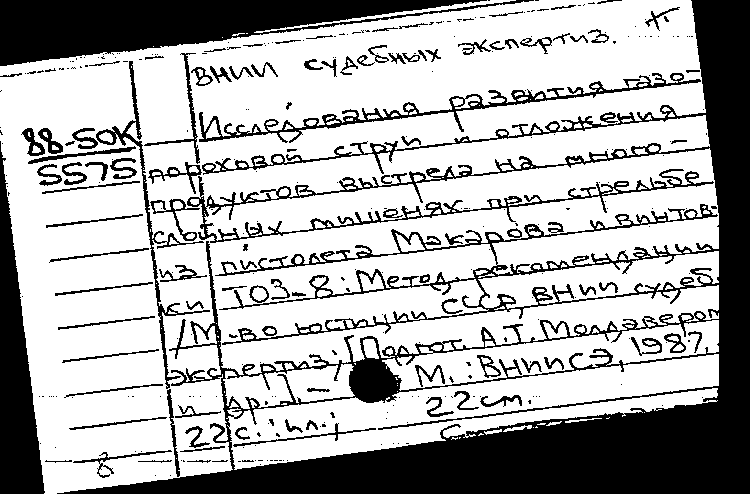 ВНИИ судебных экспертиз.
88-50К
5575
Исследования развития газо-
пороховой струи и отложения
продуктов выстрела на много-
слойных мишенях при стрельбе
из пистолета Макарова и винтов-
ки ТОЗ-8: Метод. рекомендации
/М-во юстиции СССР, ВНИИ судеб.
экспертиз; [Подгот. А.Т. Молдавером
и др.]. - М.: ВНИИСЭ, 1987.
22 с.: ил.; 22 см.
8